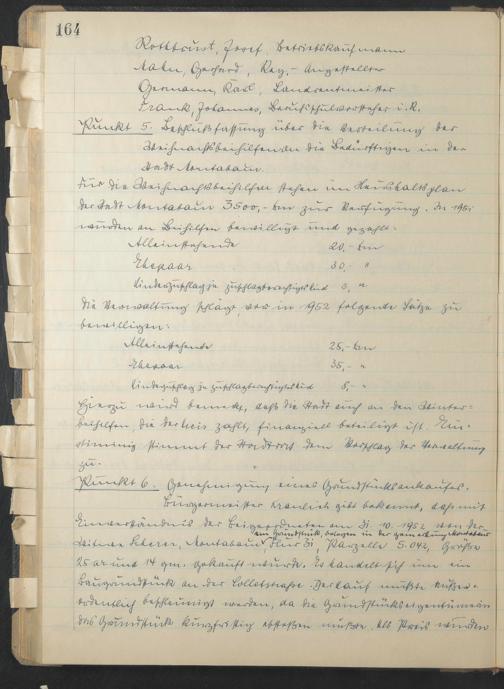 164
Rotthust, Josef, Betriebskaufmann
Gerhard, Reg.- Angestellter
Germann, Karl, Landrentmeister
Frank, Johannes, Berufschulvorsteher i.R.
Punkt 5. Beschlußfassung über die Verteilung der
Weihnachtsbeihilfen an die Bedürftigen in der
Stadt Montabaur.
Für die Weihnachtsbeihilfen stehen im Haushaltsplan
der Stadt Montabaur 3500,- DM zur Verfügung. In 1951
wurden an Beihilfen bewilligt und gezahlt:
Alleinstehende 20,- DM
Ehepaar 30,- "
Kinderzuschlag je zuschlagberechtigtes Kind "
Die Verwaltung schlägt vor in 1952 folgende Sätze zu
bewilligen:
Alleinstehende 25,- DM
Ehepaar 35,- "
Kinderzuschlag je zuschlagberechtigtes Kind 5,- "
Hierzu wird bemerkt, daß die Stadt auch an den Winter-
beihilfen, die der Kreis zahlt, finanziell beteiligt ist. Ein-
stimmig stimmt der Stadtrat dem Vorschlag der Verwaltung
zu.
Punkt 6. Genehmigung eines Grundstücksankaufes.
Bürgermeister Kraulich gibt bekannt, daß mit
Einverständnis der Beigeordneten am 31.10.1952 von der
ein Grundstück, belegen in der Gemarkung Montabaur
Witwe Montabaur Flur 31, Parzelle 5042, Größe
25 ar und 14 qm gekauft wurde. Es handelt sich um ein
Baugrundstück an der Straße. Der Kauf mußte außer-
ordentlich beschleunigt werden, da die Grundstückseigentümerin
das Grundstück kurzfristig abstoßen mußte. Als Preis wurden